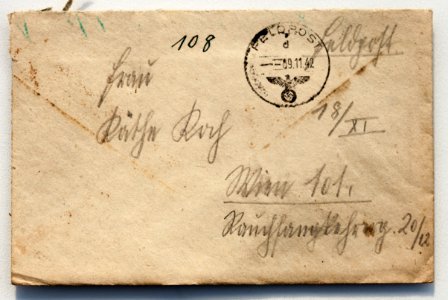 108
FELDPOST
d
09.11.42
Feldpost.
Frau
Käthe Koch
18/XI
Wien 101.
Rauchfangkehrerg. 20/12